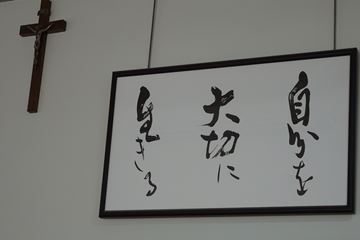 自分を
大切に
生きる